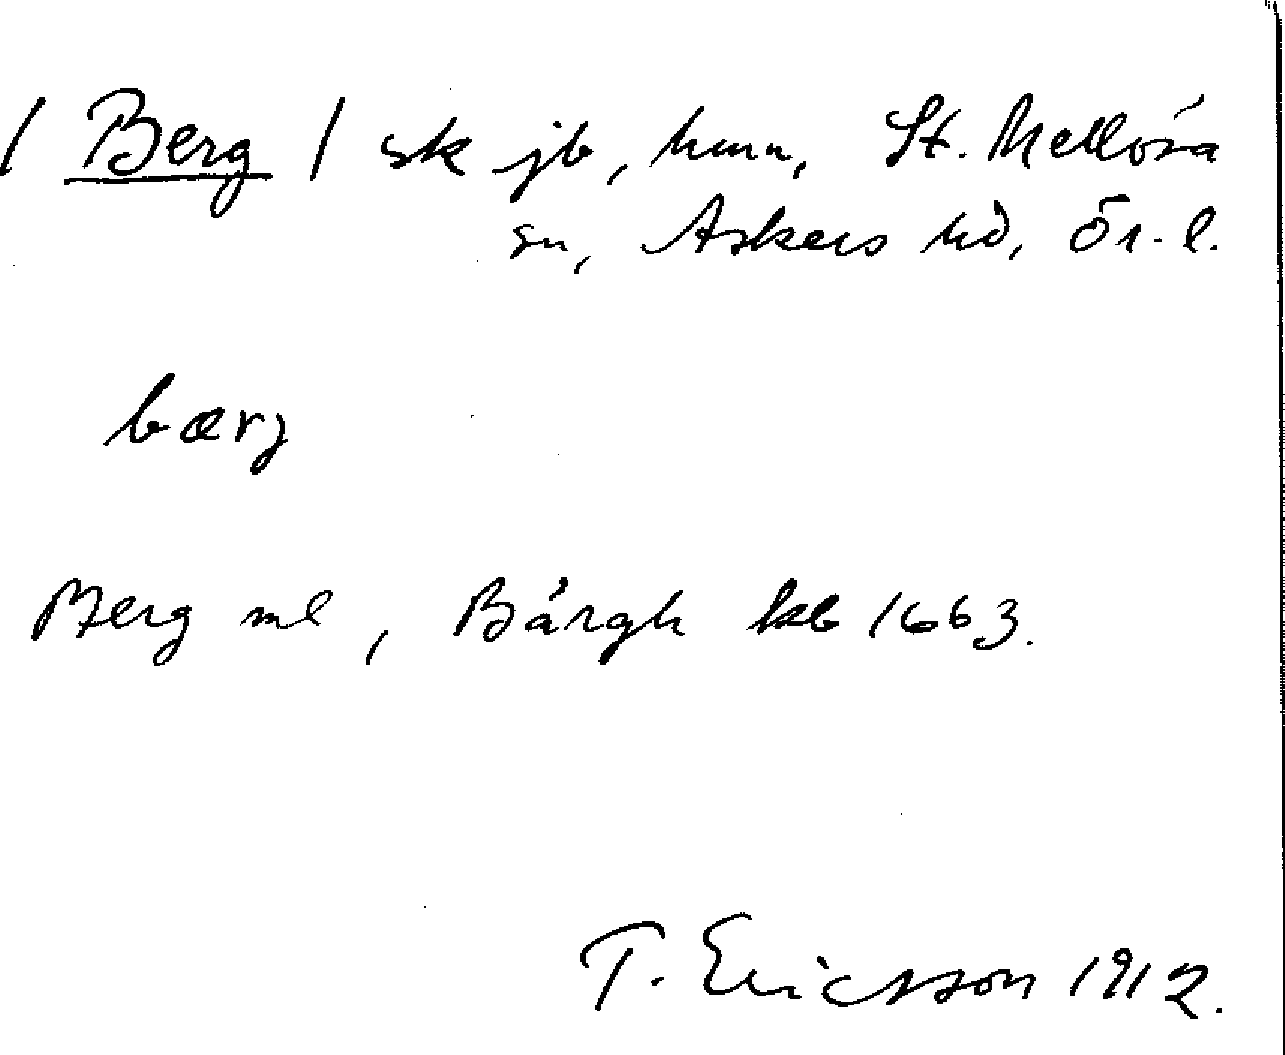 / Berg / sk jb, hmn, St. Mellösa
sn, Askers hd, Ör. l.
bærj
Berg ml, Bärgh kb 1663.
T. Ericsson 1912.